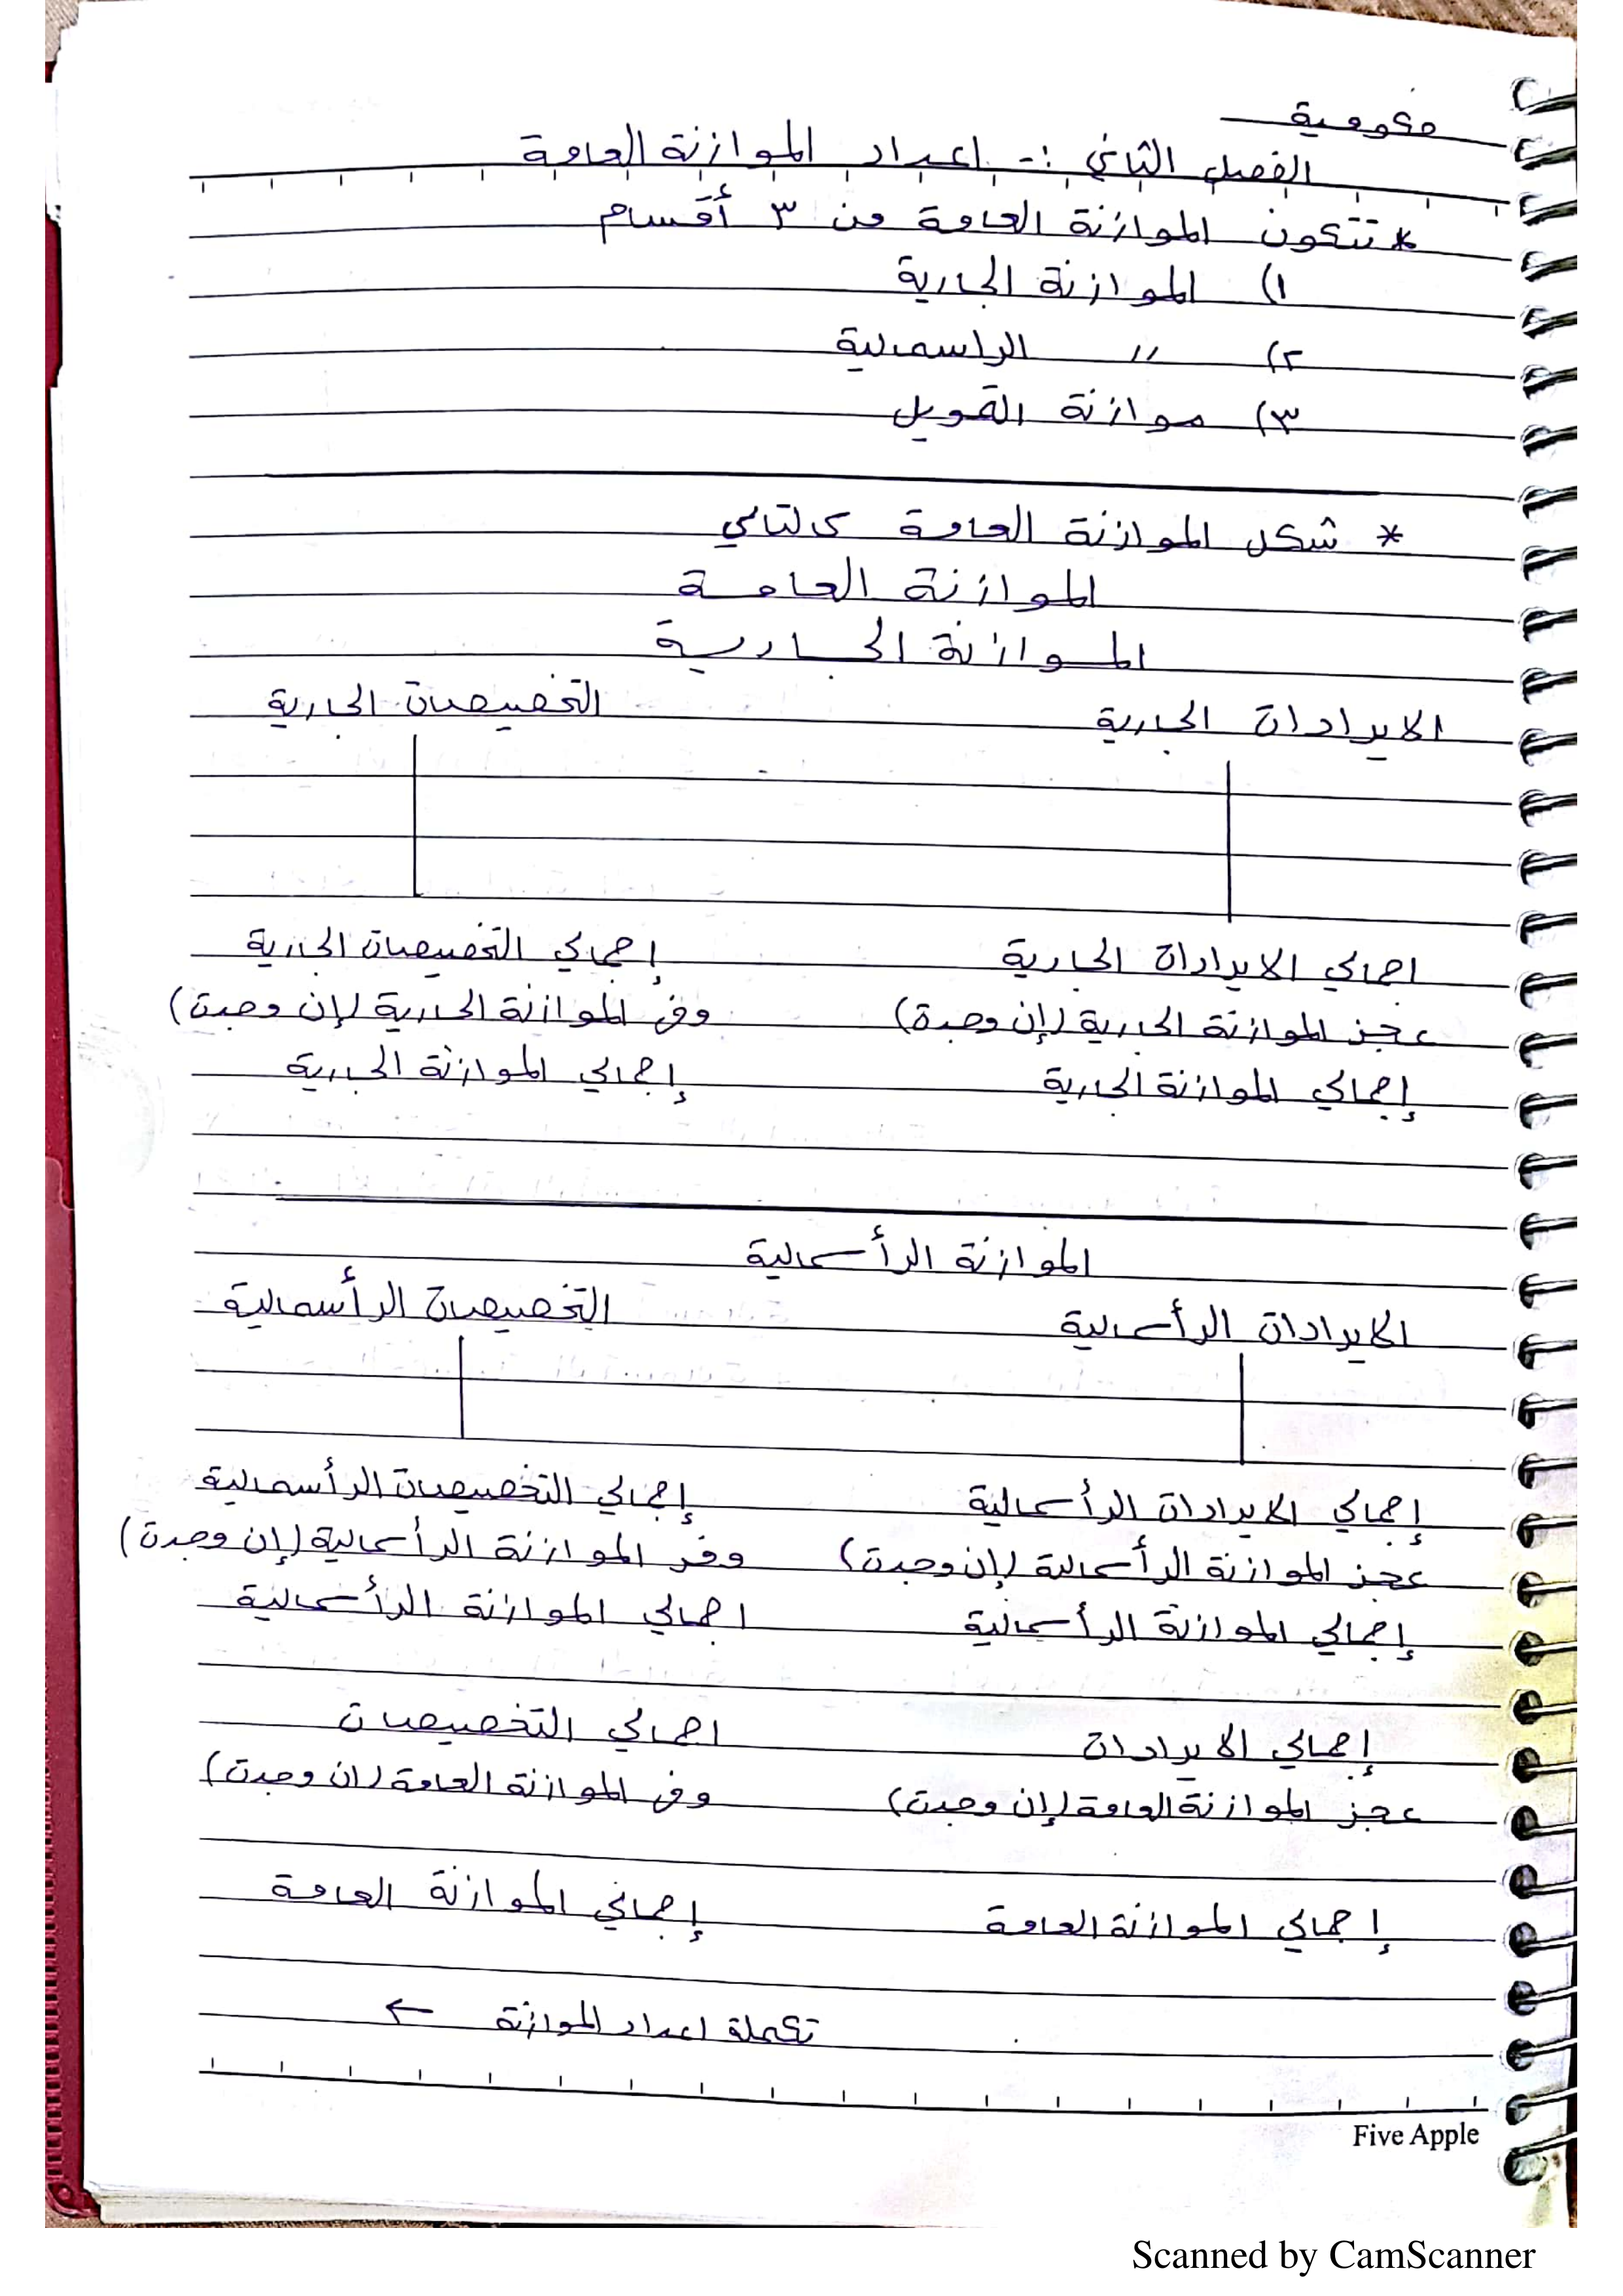 حكومية
الفصل الثاني :- اعداد الموازنة العامة
* تتكون الموازنة العامة من ٣ أقسام
١) الموازنة الجارية
٢) // الراسمالية
٣) موازنة التمويل
* شكل الموازنة العامة كالتالي
الموازنة العامة
الموازنة الجارية
الايرادات الجارية التخصيصات الجارية
اجمالي الايرادات الجارية إجمالي التخصيصات الجارية
عجز الموازنة الجارية (إن وجدت) وفر الموازنة الجارية (إن وجدت)
إجمالي الموازنة الجارية إجمالي الموازنة الجارية
الموازنة الرأسمالية
الايرادات الرأسمالية التخصيصات الرأسمالية
إجمالي الايرادات الرأسمالية إجمالي التخصيصات الرأسمالية
عجز الموازنة الرأسمالية (إن وجدت) وفر الموازنة الرأسمالية (إن وجدت)
إجمالي الموازنة الرأسمالية اجمالي الموازنة الرأسمالية
إجمالي الايرادات اجمالي التخصيصات
عجز الموازنة العامة (إن وجدت) وفر الموازنة العامة (ان وجدت)
إجمالي الموازنة العامة إجمالي الموازنة العامة
تكملة اعداد الموازنة ←
Five Apple
Scanned by CamScanner